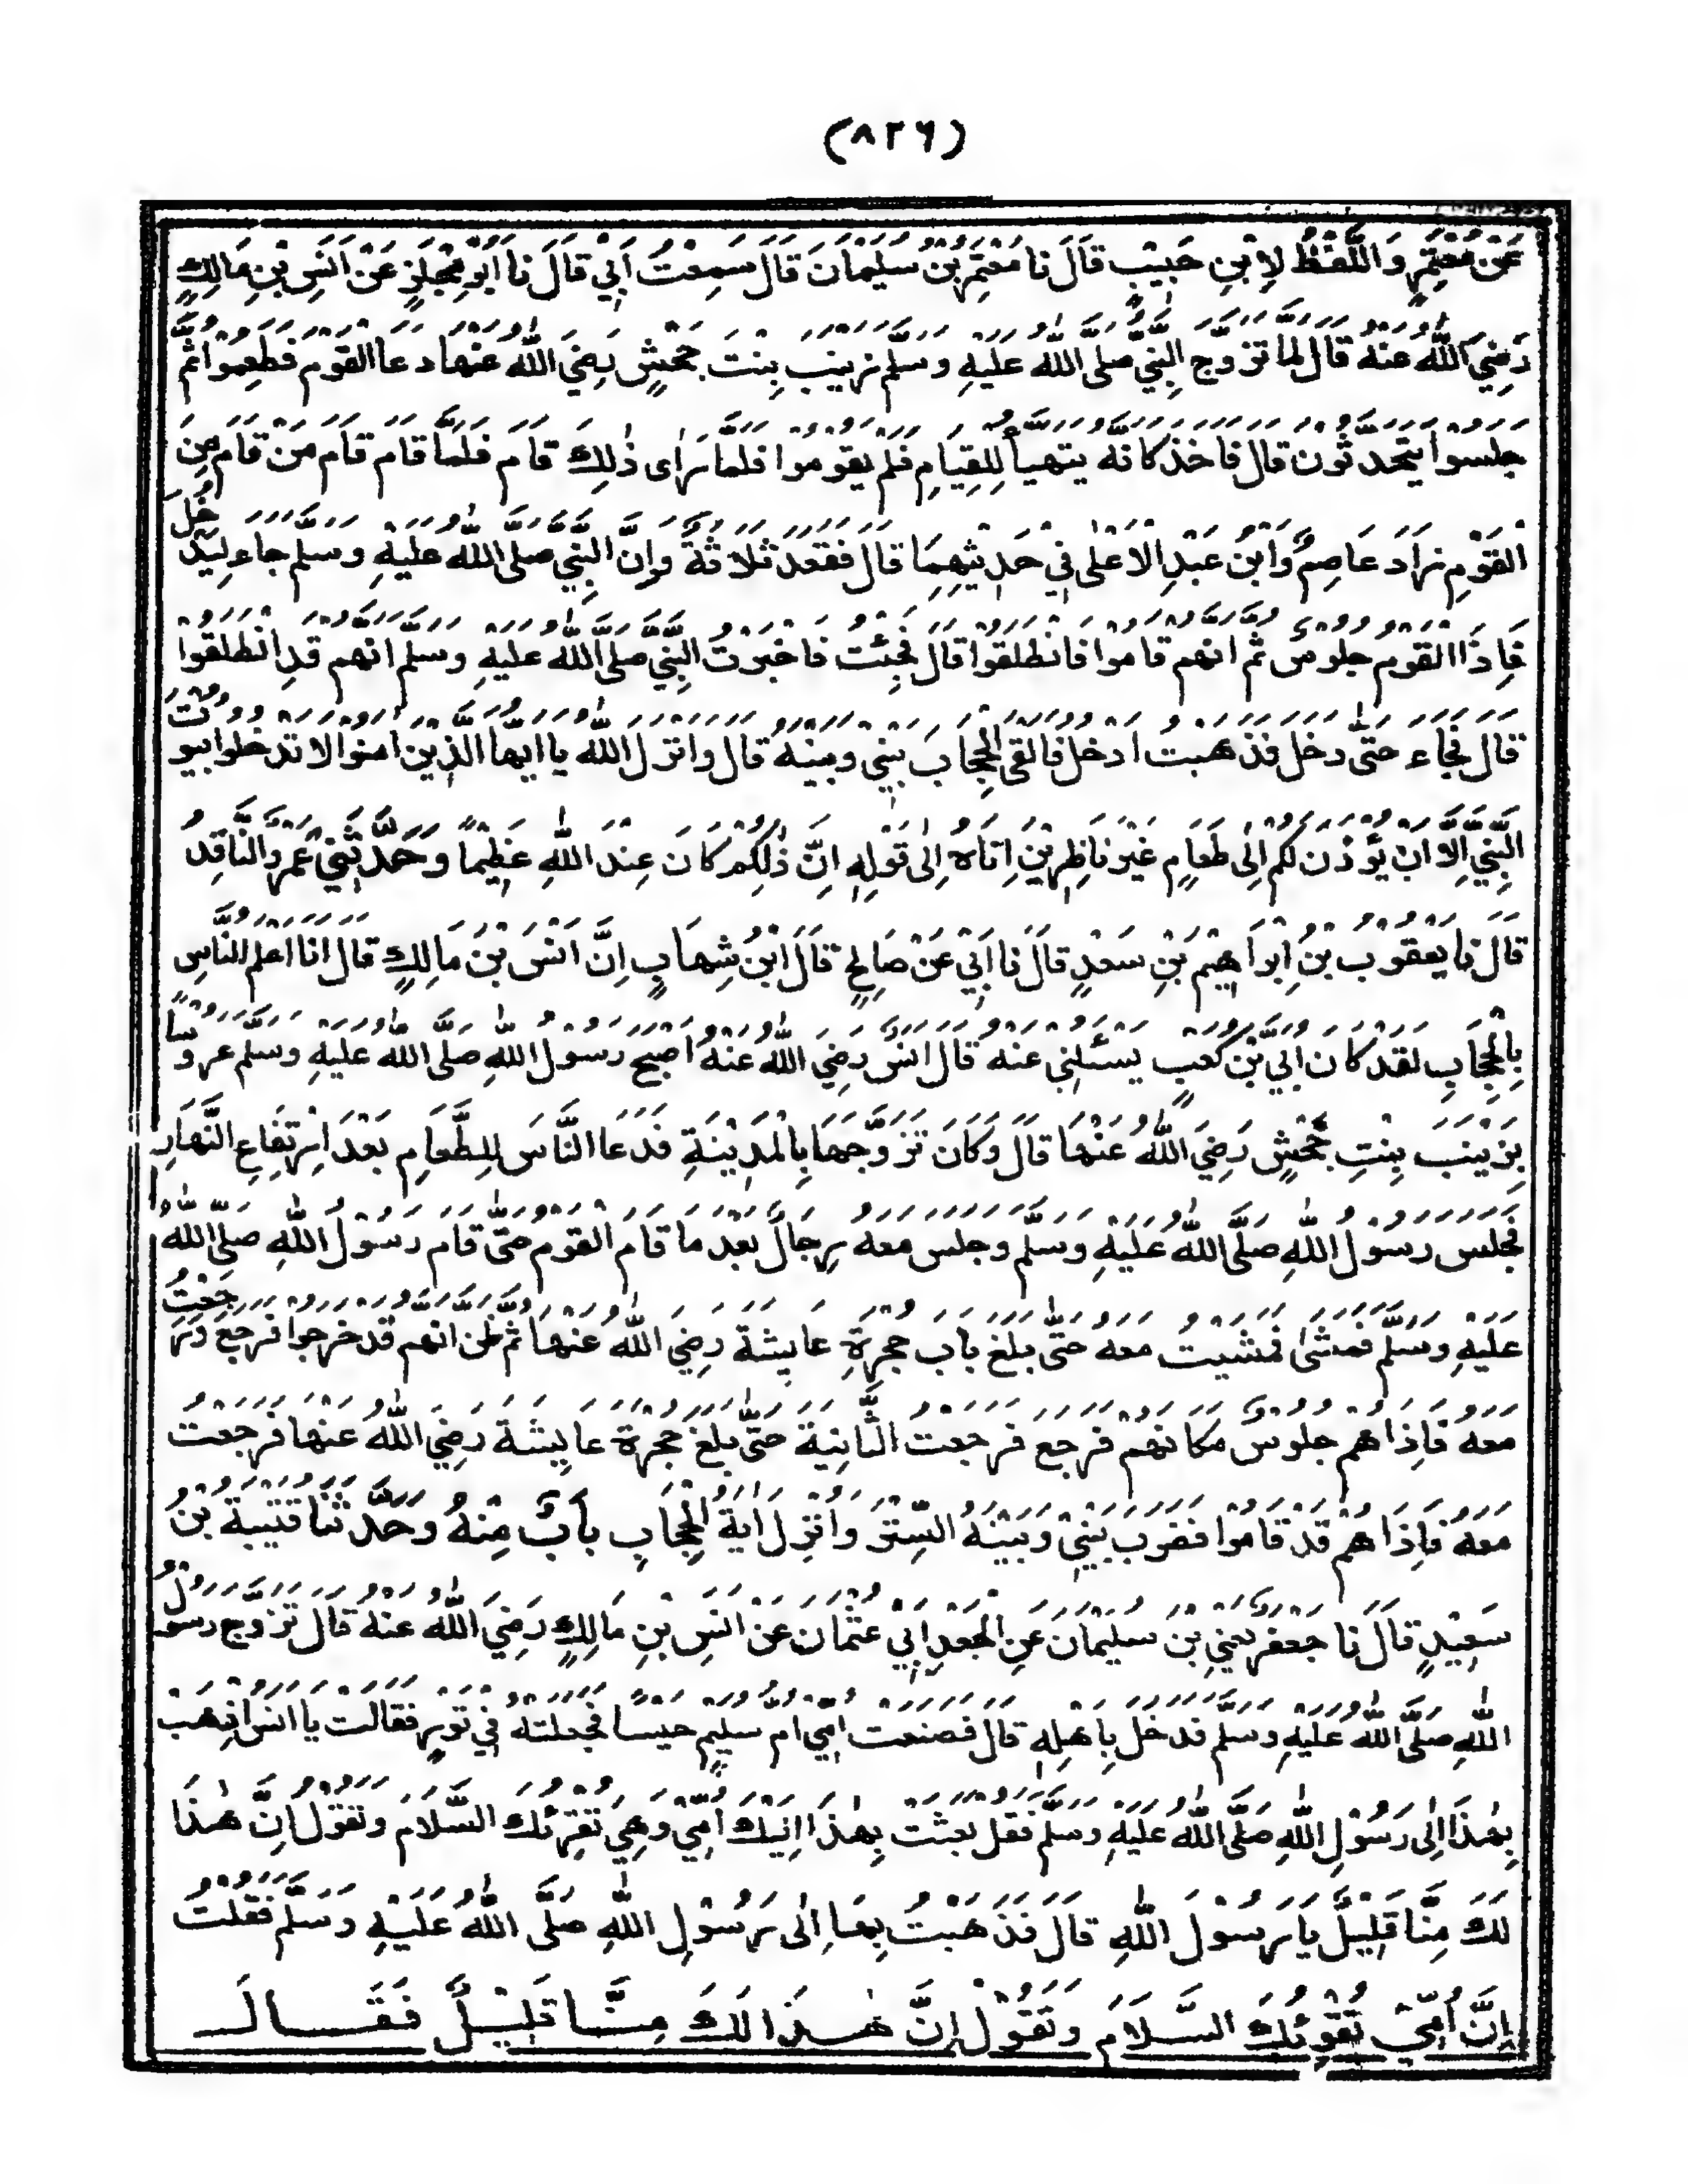 (٨٢٦)
عَنْ مُعْتَمِرٍ وَاللَّفْظُ لِابْنِ حَبِيْبٍ قَالَ نَا مُعْتَمِرُ بْنُ سُلَيْمَانَ قَالَ سَمِعْتُ اَبِيْ قَالَ نَا اَبُوْ مِجْلَزٍ عَنْ اَنَسِ بْنِ مَالِكٍ
رَضِيَ اللّٰهُ عَنْهُ قَالَ لَمَّا تَزَوَّجَ النَّبِيُّ صَلَّى اللّٰهُ عَلَيْهِ وَسَلَّمَ زَيْنَبَ بِنْتَ جَحْشٍ رَضِيَ اللّٰهُ عَنْهَا دَعَا الْقَوْمَ فَطَعِمُوْا ثُمَّ
جَلَسُوْا يَتَحَدَّثُوْنَ قَالَ فَاَخَذَ كَاَنَّهُ يَتَهَيَّأُ لِلْقِيَامِ فَلَمْ يَقُوْمُوْا فَلَمَّا رَاٰى ذٰلِكَ قَامَ فَلَمَّا قَامَ قَامَ مَنْ قَامَ مِنَ
الْقَوْمِ زَادَ عَاصِمٌ وَابْنُ عَبْدِ الْاَعْلٰى فِيْ حَدِيْثِهِمَا قَالَ فَقَعَدَ ثَلَاثَةٌ وَاِنَّ النَّبِيَّ صَلَّى اللّٰهُ عَلَيْهِ وَسَلَّمَ جَاءَ لِيَدْخُلَ
فَاِذَا الْقَوْمُ جُلُوْسٌ ثُمَّ اِنَّهُمْ قَامُوْا فَانْطَلَقُوْا قَالَ فَجِئْتُ فَاَخْبَرْتُ النَّبِيَّ صَلَّى اللّٰهُ عَلَيْهِ وَسَلَّمَ اَنَّهُمْ قَدِ انْطَلَقُوْا
قَالَ فَجَاءَ حَتّٰى دَخَلَ فَذَهَبْتُ اَدْخُلُ فَاَلْقَى الْحِجَابَ بَيْنِيْ وَبَيْنَهُ قَالَ وَاَنْزَلَ اللّٰهُ يَا اَيُّهَا الَّذِيْنَ اٰمَنُوْا لَا تَدْخُلُوْا بُيُوْتَ
النَّبِيِّ اِلَّا اَنْ يُؤْذَنَ لَكُمْ اِلٰى طَعَامٍ غَيْرَ نَاظِرِيْنَ اِنَاهُ اِلٰى قَوْلِهِ اِنَّ ذٰلِكُمْ كَانَ عِنْدَ اللّٰهِ عَظِيْمًا وَحَدَّثَنِيْ عَمْرٌو النَّاقِدُ
قَالَ نَا يَعْقُوْبُ بْنُ اِبْرَاهِيْمَ بْنِ سَعْدٍ قَالَ نَا اَبِيْ عَنْ صَالِحٍ قَالَ ابْنُ شِهَابٍ اِنَّ اَنَسَ بْنَ مَالِكٍ قَالَ اَنَا اَعْلَمُ النَّاسِ
بِالْحِجَابِ لَقَدْ كَانَ اُبَيُّ بْنُ كَعْبٍ يَسْئَلُنِيْ عَنْهُ قَالَ اَنَسٌ رَضِيَ اللّٰهُ عَنْهُ اَصْبَحَ رَسُوْلُ اللّٰهِ صَلَّى اللّٰهُ عَلَيْهِ وَسَلَّمَ عَرُوْسًا
بِزَيْنَبَ بِنْتِ جَحْشٍ رَضِيَ اللّٰهُ عَنْهَا قَالَ وَكَانَ تَزَوَّجَهَا بِالْمَدِيْنَةِ فَدَعَا النَّاسَ لِلطَّعَامِ بَعْدَ اِرْتِفَاعِ النَّهَارِ
فَجَلَسَ رَسُوْلُ اللّٰهِ صَلَّى اللّٰهُ عَلَيْهِ وَسَلَّمَ وَجَلَسَ مَعَهُ رِجَالٌ بَعْدَ مَا قَامَ الْقَوْمُ حَتّٰى قَامَ رَسُوْلُ اللّٰهِ صَلَّى اللّٰهُ
عَلَيْهِ وَسَلَّمَ فَمَشٰى فَمَشَيْتُ مَعَهُ حَتّٰى بَلَغَ بَابَ حُجْرَةِ عَايِشَةَ رَضِيَ اللّٰهُ عَنْهَا ثُمَّ ظَنَّ اَنَّهُمْ قَدْ خَرَجُوْا فَرَجَعَ وَرَجَعْتُ
مَعَهُ فَاِذَا هُمْ جُلُوْسٌ مَكَانَهُمْ فَرَجَعَ فَرَجَعْتُ الثَّانِيَةَ حَتّٰى بَلَغَ حُجْرَةَ عَايِشَةَ رَضِيَ اللّٰهُ عَنْهَا فَرَجَعْتُ
مَعَهُ فَاِذَا هُمْ قَدْ قَامُوْا فَضَرَبَ بَيْنِيْ وَبَيْنَهُ السِّتْرَ وَاُنْزِلَ اٰيَةُ الْحِجَابِ بَابٌ مِنْهُ وَحَدَّثَنَا قُتَيْبَةُ بْنُ
سَعِيْدٍ قَالَ نَا جَعْفَرٌ يَعْنِي بْنَ سُلَيْمَانَ عَنِ الْجَعْدِ اَبِيْ عُثْمَانَ عَنْ اَنَسِ بْنِ مَالِكٍ رَضِيَ اللّٰهُ عَنْهُ قَالَ تَزَوَّجَ رَسُوْلُ
اللّٰهِ صَلَّى اللّٰهُ عَلَيْهِ وَسَلَّمَ فَدَخَلَ بِاَهْلِهِ قَالَ فَصَنَعَتْ اُمِّيْ اُمُّ سُلَيْمٍ حَيْسًا فَجَعَلَتْهُ فِيْ تَوْرٍ فَقَالَتْ يَا اَنَسُ اذْهَبْ
بِهٰذَا اِلٰى رَسُوْلِ اللّٰهِ صَلَّى اللّٰهُ عَلَيْهِ وَسَلَّمَ فَقُلْ بَعَثَتْ بِهٰذَا اِلَيْكَ اُمِّيْ وَهِيَ تُقْرِئُكَ السَّلَامَ وَتَقُوْلُ اِنَّ هٰذَا
لَكَ مِنَّا قَلِيْلٌ يَا رَسُوْلَ اللّٰهِ قَالَ فَذَهَبْتُ بِهَا اِلٰى رَسُوْلِ اللّٰهِ صَلَّى اللّٰهُ عَلَيْهِ وَسَلَّمَ فَقُلْتُ
اِنَّ اُمِّيْ تُقْرِئُكَ السَّلَامَ وَتَقُوْلُ اِنَّ هٰذَا لَكَ مِنَّا قَلِيْلٌ فَقَالَ